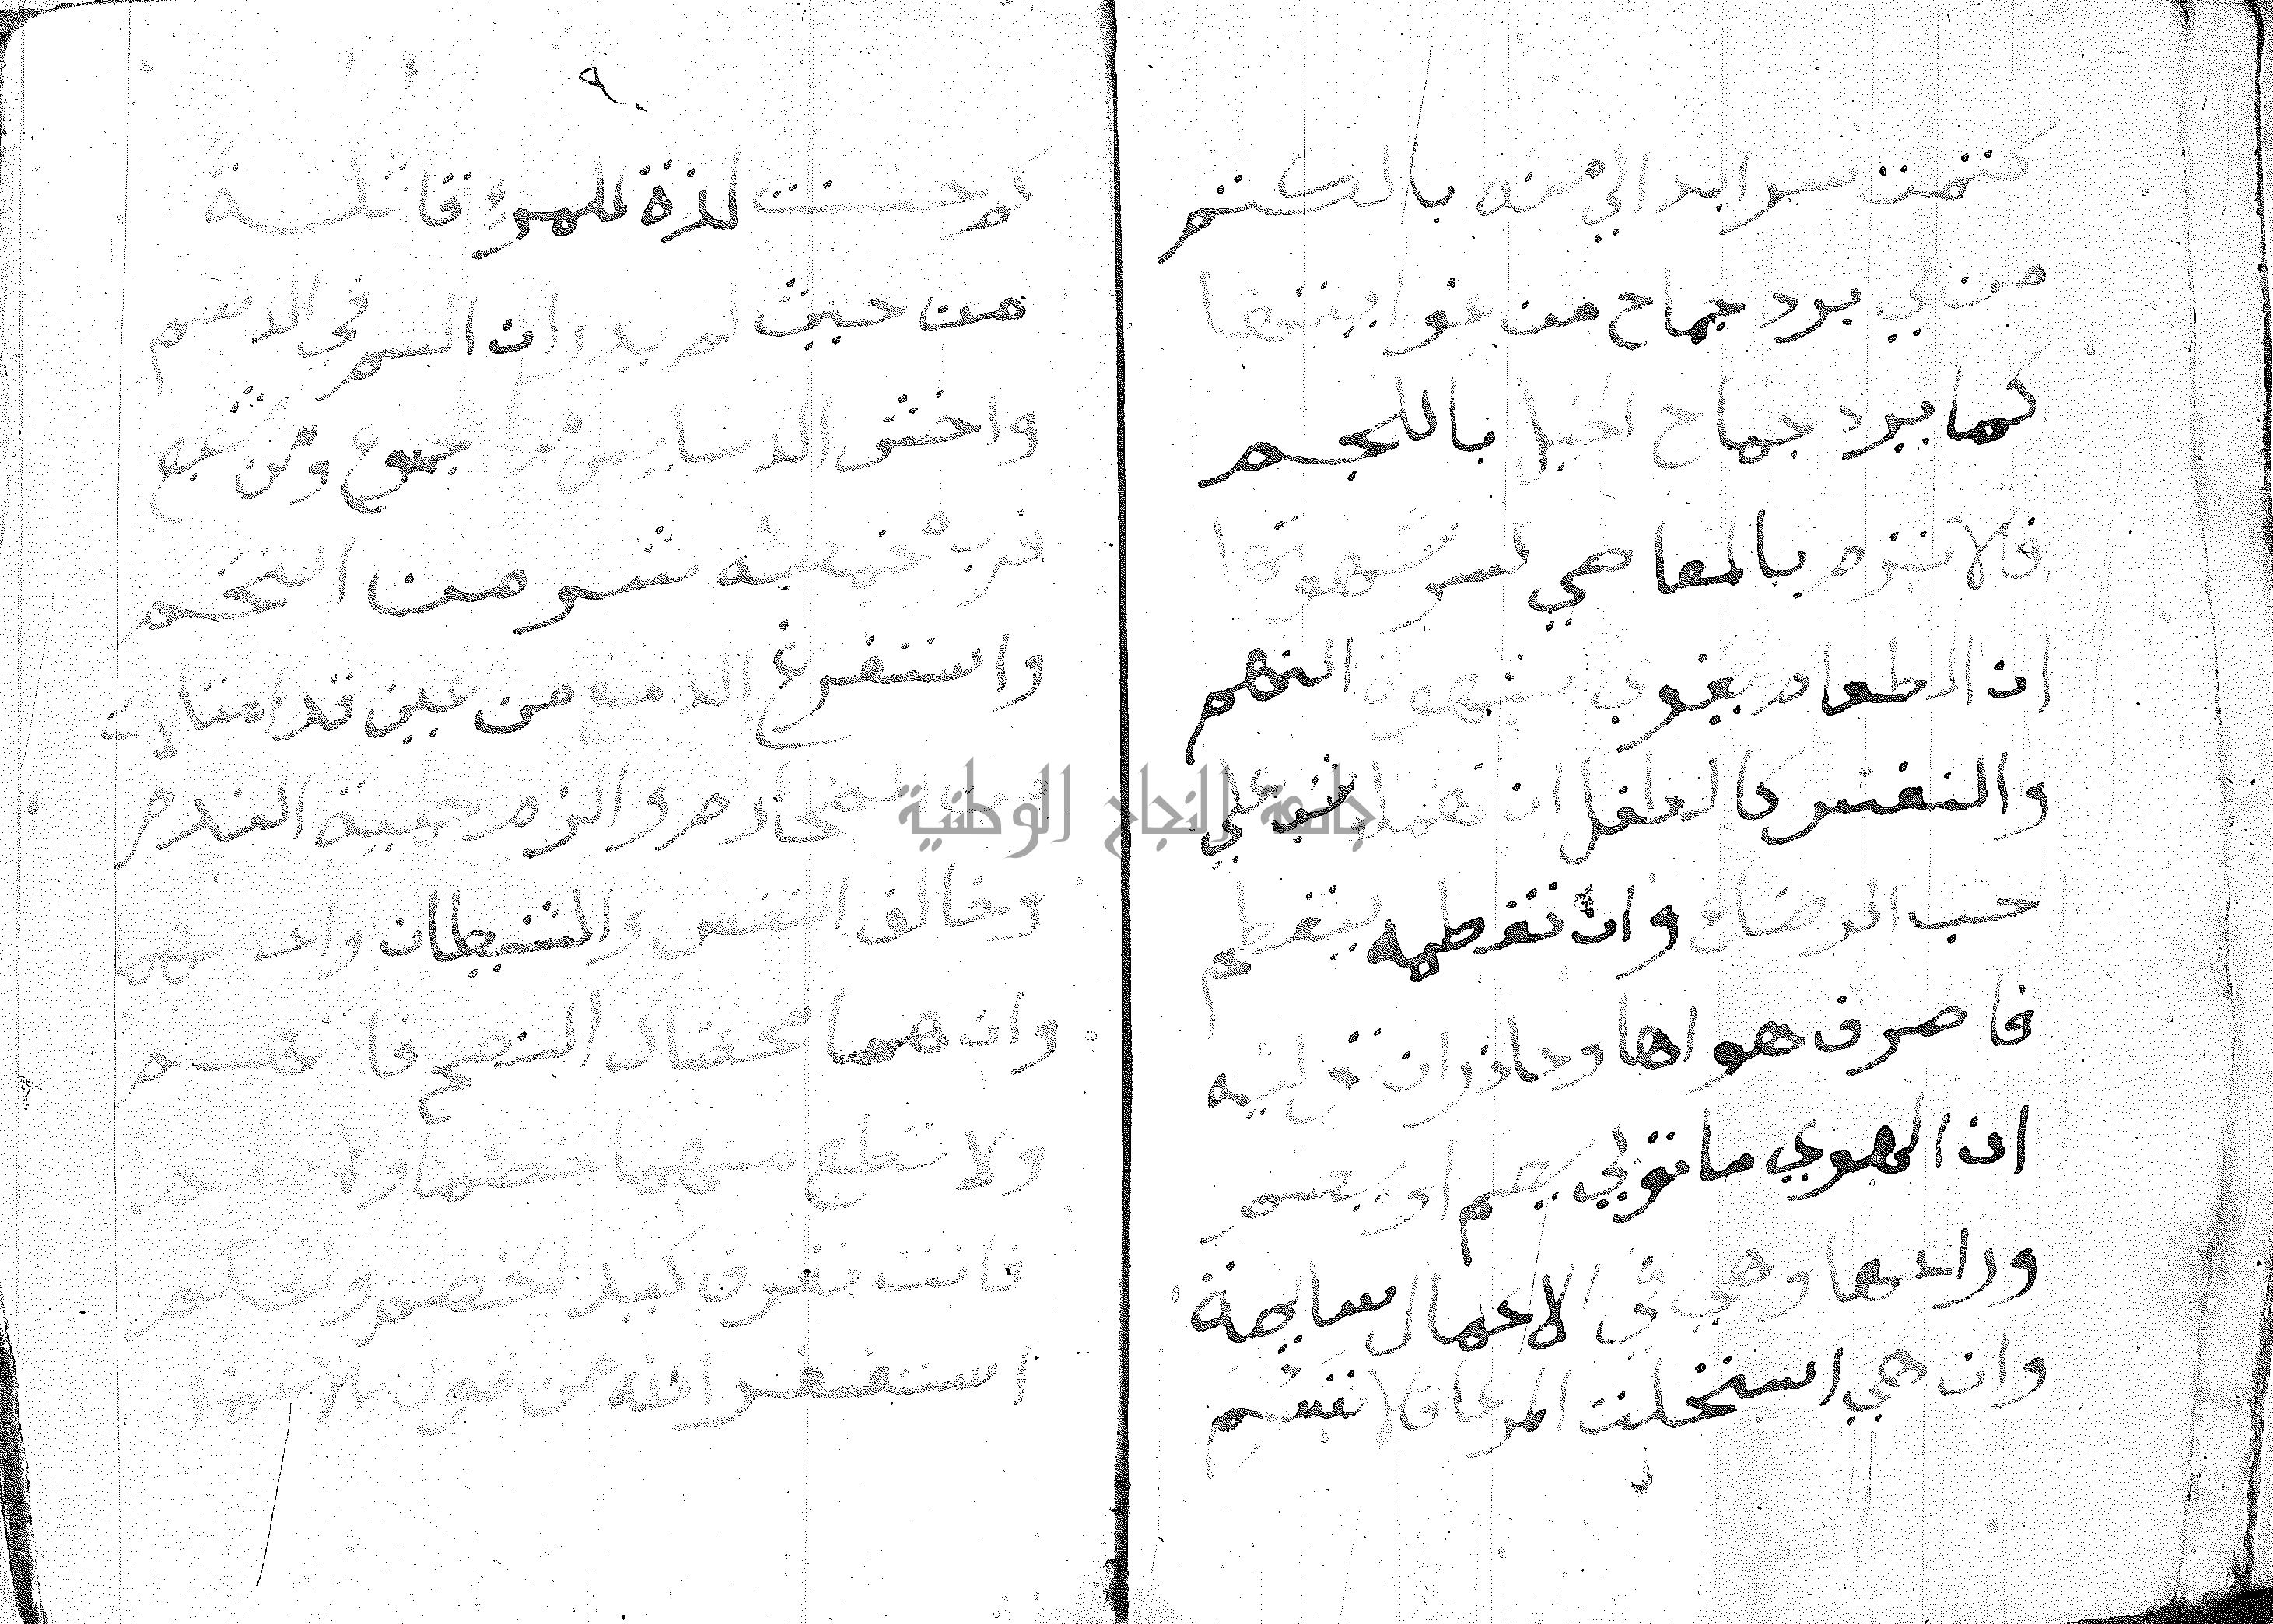 كتمت سرا بدا لي منه بالكتم
من لي برد جماح من غوايتها
كما يرد جماح الخيل باللجم
فلا ترم بالمعاصي كسر شهوتها
ان الطعام يقوي شهوة النهم
والنفس كالطفل ان تهمله شب علي
حب الرضاع وان تفطمه ينفطم
فاصرف هواها وحاذر ان توليه
ان الهوي ما تولي يصم او يصم
وراعها وهي في الاعمال سايمة
وان هي استحلت المرعا فلا تسم
٩
كم حسنت لذة للمرء قاتلة
من حيث لم يدر ان السم في الدسم
واخش الدسايس من جوع ومن شبع
فرب مخمصة شر من التخم
واستفرغ الدمع من عين قد امتلات
المحارم والزم حمية الندم
وخالف النفس والشيطان واعصهما
وان هما محضاك النصح فاتهم
ولا تطع منهما خصما ولا
فانت تعرف كيد الخصم والحكم
استغفر الله من قول بلا
جامعة النجاح الوطنية